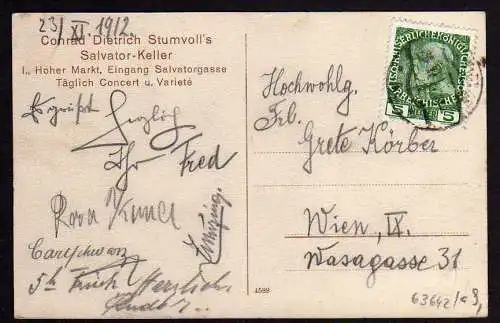 23/XI. 1912.
Conrad Dietrich Stumvoll's
Salvator-Keller
I., Hoher Markt, Eingang Salvatorgasse
Täglich Concert u. Varieté
Es grüßt herzlich
Ihr Fred
Rosa
Carl Schwarz
Herzlich
Hochwolgb.
Frl.
Grete Körber
Wien, IX.
Wasagasse 31
4599
63642/a9
5 5